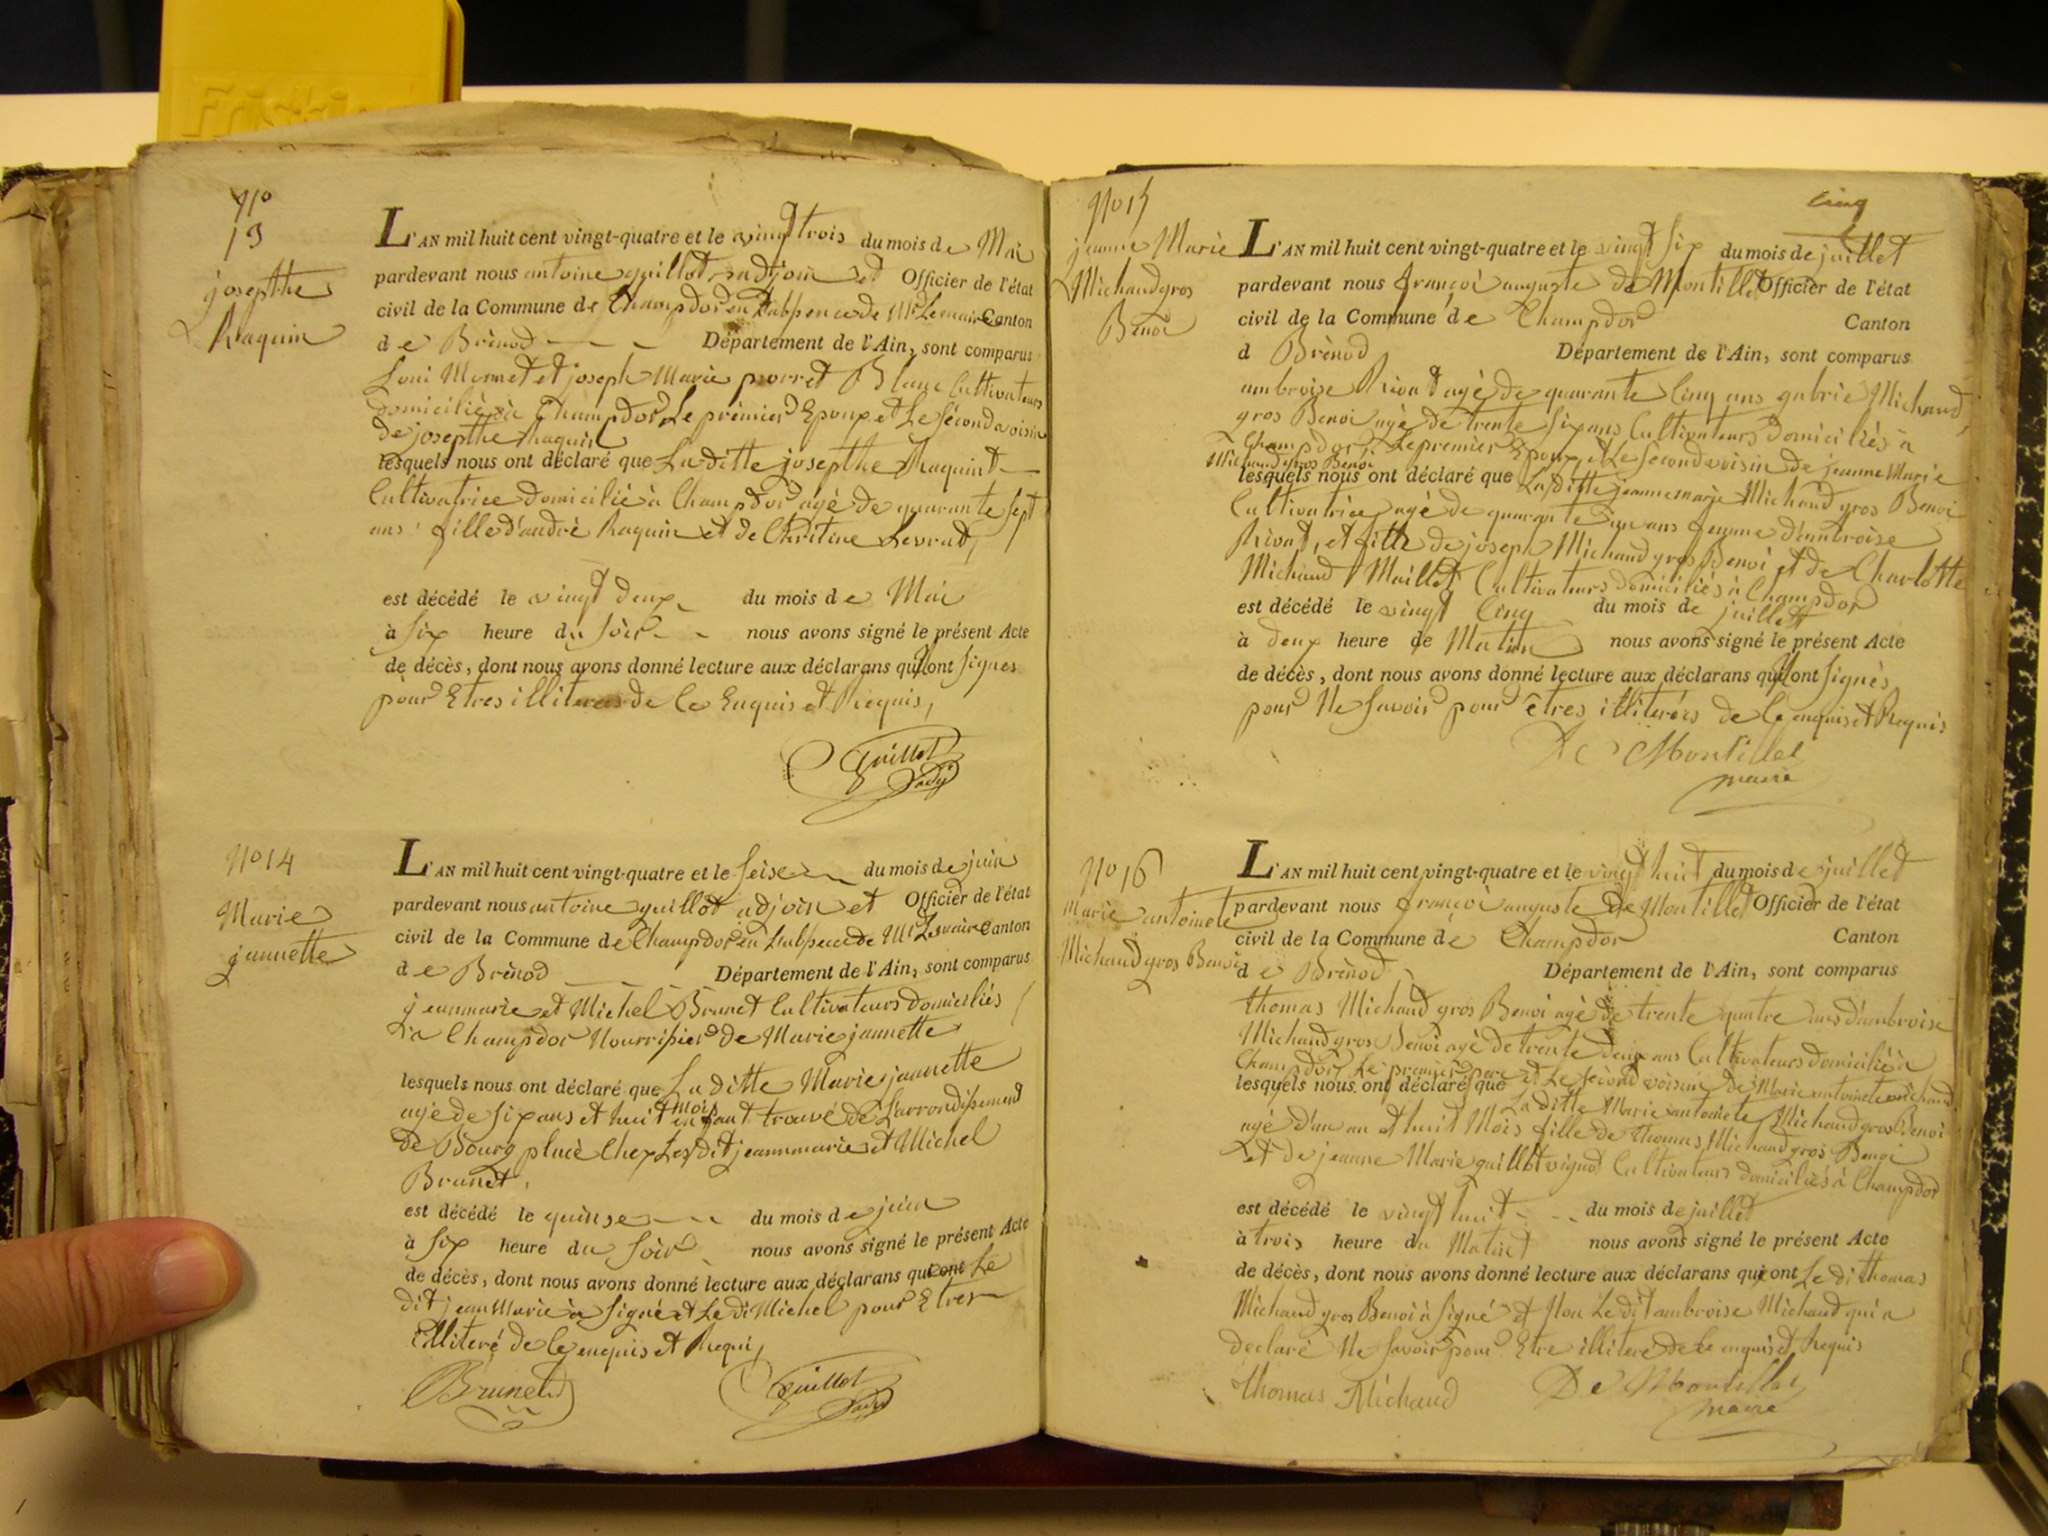 Nº
13
josephte
Raquin
L'AN mil huit cent vingt-quatre et le vingt trois du mois de Mai
pardevant nous antoine guillot adjoin et Officier de l'état
civil de la Commune de Champdor en Labsence de Mr Lemaire Canton
de Brénod Département de l'Ain, sont comparus
Loui Monnet et joseph Marie porret Blanc Cultivateurs
domiciliés à Champdor Le prémier Epoux et Le sécond voisin
de josephte Raquin
lesquels nous ont déclaré que La ditte josephte Raquin
Cultivatrice domicilié à Champdor agé de quarante sept
ans fille d'andré Raquin et de Christine Levrat,
est décédé le vingt deux du mois de Mai
à six heure du soir nous avons signé le présent Acte
de décès, dont nous avons donné lecture aux déclarans qui Nont signés
pour Etres illiterés de Ce Enquis et Requis,
Guillot
adj
Nº 14
Marie
jannette
L'AN mil huit cent vingt-quatre et le seise du mois de juin
pardevant nous antoine guillot adjoin et Officier de l'état
civil de la Commune de Champdor en Labsence de Mr Lemaire Canton
de Brénod Département de l'Ain, sont comparus
jeanmarie et Michel Brunet Cultivateurs domiciliés
à Champdor Nourrisier de Marie jannette
lesquels nous ont déclaré que La ditte Marie jannette
agé de six ans et huit mois enfant trouvé de Larrondissement
de Bourg placé Chez Les dit jeanmarie et Michel
Brunet,
est décédé le quinse du mois de juin
à six heure du soir nous avons signé le présent Acte
de décès, dont nous avons donné lecture aux déclarans qui ont Le
dit jean Marie à signé et Le di Michel pour Etres
illiteré de Ce enquis et Requi,
Brunet
Guillot
adj
Nº 15
jeanne Marie
Michaud gros
Benoi
Cinq
L'AN mil huit cent vingt-quatre et le vingt six du mois de juillet
pardevant nous françoi auguste de Montillet Officier de l'état
civil de la Commune de Champdor Canton
d Brénod Département de l'Ain, sont comparus
ambroise Rivat agé de quarante Cinq ans gabrié Michaud
gros Benoi agé de trente six ans Cultivateurs domiciliés à
Champdor Le premier Epoux et Le sécond voisin de jeanne Marie
Michaud gros Benoi
lesquels nous ont déclaré que La ditte jeanne marie Michaud gros Benoi
Cultivatrice agé de quarante un ans femme d'ambroise
Rivat, et fille de joseph Michaud gros Benoi et de Charlotte
Michaud Maillet Cultivateurs domiciliés à Champdor
est décédé le vingt Cinq du mois de juillet
à deux heure de Matin nous avons signé le présent Acte
de décès, dont nous avons donné lecture aux déclarans qui Nont signés
pour Ne savoir pour êtres illiterés de Ce enquis et Requis
De Montillet
maire
Nº 16
Marie antoinete
Michaud gros Benoi
L'AN mil huit cent vingt-quatre et le vingt huit du mois de juillet
pardevant nous françoi auguste de Montillet Officier de l'état
civil de la Commune de Champdor Canton
de Brénod Département de l'Ain, sont comparus
thomas Michaud gros Benoi agé de trente quatre ans d'ambroise
Michaud gros Benoi agé de trente deux ans Cultivateurs domicilié à
Champdor, Le premier pere et Le sécond voisin de Marie antoinete michaud
lesquels nous ont déclaré que La ditte Marie antoinete Michaud gros Benoi
agé d'un an et huit Mois fille de thomas Michaud gros Benoi
et de jeanne Marie guillot vignot Cultivateurs domiciliés à Champdor
est décédé le vingt huit du mois de juillet
à trois heure du Matin nous avons signé le présent Acte
de décès, dont nous avons donné lecture aux déclarans qui ont Le di thomas
Michaud gros Benoi à signé et Non Le dit ambroise Michaud qui a
declaré Ne savoir pour Etre illiteré de Ce enquis et Requis
thomas Michaud
De Montillet
maire